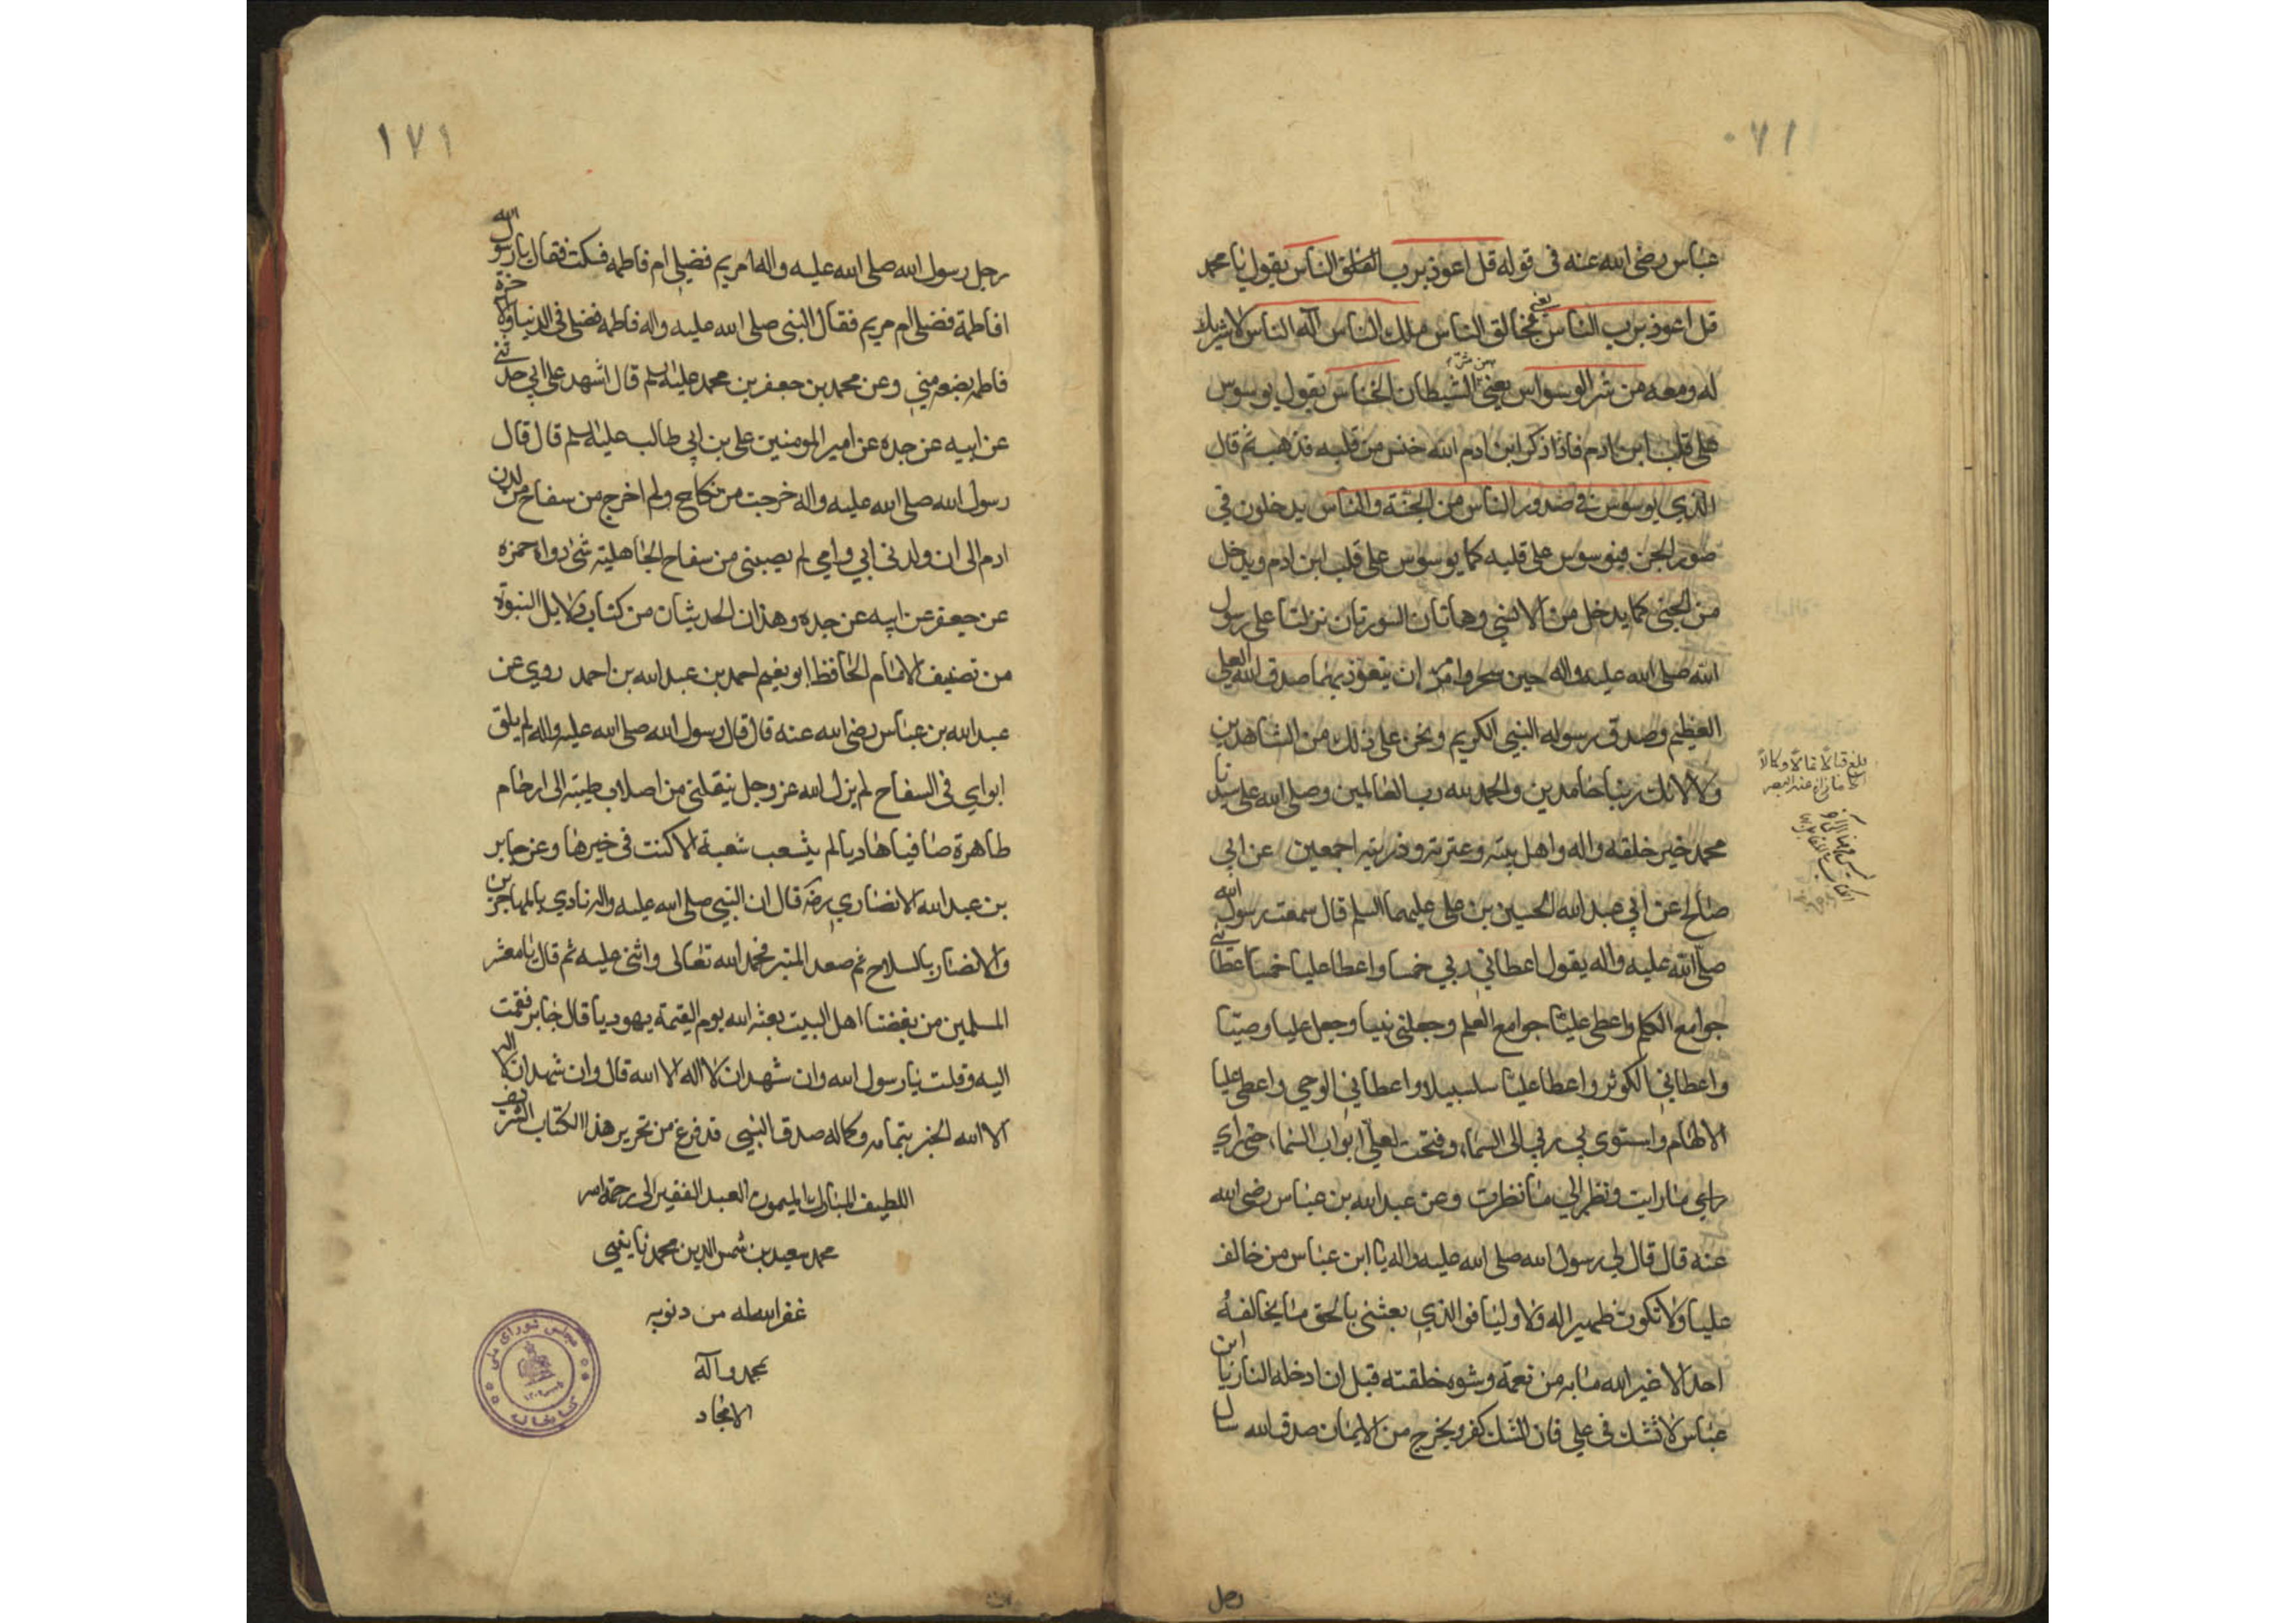 عباس رضی الله عنه فی قوله قل اعوذ برب الفلق الناس یقول یا محمد
قل اعوذ برب الناس یعنی بخالق الناس ملک الناس اله الناس لا شریک
له ومعه من شر الوسواس یعنی من شر الشیطان الخناس یقول یوسوس
علی قلب ابن ادم فاذا ذکر ابن ادم الله خنس من قلبه فذهب ثم قال
الذی یوسوس فی صدور الناس من الجنة والناس یدخلون فی
صور الجن فیوسوس علی قلبه کما یوسوس علی قلب ابن ادم ویدخل
من الجنی کما یدخل من الانسی وهاتان السورتان نزلتا علی رسول
الله صلی الله علیه واله حین سحر وامر ان یتعوذ بهما صدق الله العلی
العظیم وصدق رسوله النبی الکریم ونحن علی ذلک من الشاهدین
ولالائک ربنا حامدین والحمد لله رب العالمین وصلی الله علی سیدنا
محمد خیر خلقه واله واهل بیته وعترته وذریته اجمعین عن ابی
صالح عن ابی عبد الله الحسین بن علی علیهما السلم قال سمعت رسول الله
صلی الله علیه واله یقول اعطانی ربی خمسا واعطا علیا خمسا اعطانی
جوامع الکلم واعطی علیا جوامع العلم وجعلنی نبیا وجعل علیا وصیا
واعطانی الکوثر واعطا علیا سلسبیلا واعطانی الوحی واعطی علیا
الالهام واستوی بی ربی الی السماء وفتحت لعلی ابواب السماء حتی رای
ما رایت ونظر الی ما نظرت وعن عبد الله بن عباس رضی الله
عنه قال قال لی رسول الله صلی الله علیه واله یا ابن عباس من خالف
علیا ولا تکون ظهیرا له ولا ولیا فو الذی بعثنی بالحق ما یخالفه
احد الا غیر الله ما به من نعمة وشوه خلقته قبل ان ادخله النار یا ابن
عباس لا تشک فی علی فان الشک کفر ویخرج من الایمان صدق الله
رجل
رجل رسول الله صلی الله علیه واله امریم فضیلی ام فاطمه فسکت فقال یا رسول الله
افاطمة فضلی ام مریم فقال النبی صلی الله علیه واله فاطمه فضلی فی الدنیا والاخرة
فاطمه بضعه منی وعن محمد بن جعفر بن محمد علیه السلم قال اشهد علی ابی حدثنی
عن ابیه عن جده عن امیر المومنین علی بن ابی طالب علیه السلم قال قال
رسول الله صلی الله علیه واله خرجت من نکاح ولم اخرج من سفاح من لدن
ادم الی ان ولدنی ابی وامی لم یصبنی من سفاح الجاهلیة شئ رواه حمزه
عن جعفر عن ابیه عن جده وهذان الحدیثان من کتاب دلایل النبوة
من تصنیف الامام الحافظ ابو نعیم احمد بن عبد الله بن احمد روی عن
عبد الله بن عباس رضی الله عنه قال قال رسول الله صلی الله علیه واله لم یلق
ابوای فی السفاح لم یزل الله عز وجل ینقلنی من اصلاب طیبة الی ارحام
طاهرة صافیا هادیا لم یتشعب شعبة الا کنت فی خیرها وعن جابر
بن عبد الله الانصاری رضه قال ان النبی صلی الله علیه واله نادی بالمهاجرین
والانصار بالسلاح ثم صعد المنبر فحمد الله تعالی واثنی علیه ثم قال یا معشر
المسلمین من بغضنا اهل البیت بعثه الله یوم القیمة یهودیا قال جابر فقمت
الیه وقلت یا رسول الله وان شهد ان لا اله الا الله قال وان شهد ان لا اله
الا الله الخبر بتمامه وکماله صدق النبی قد فرغ من تحریر هذا الکتاب الشریف
اللطیف المبارک المیمون العبد الفقیر الی رحمة الله
محمد سعید بن شمس الدین محمد نایینی
غفر الله له من ذنوبه
بمحمد وآله
الامجاد
مجلس شورای ملی
کتابخانه
۱۷۱